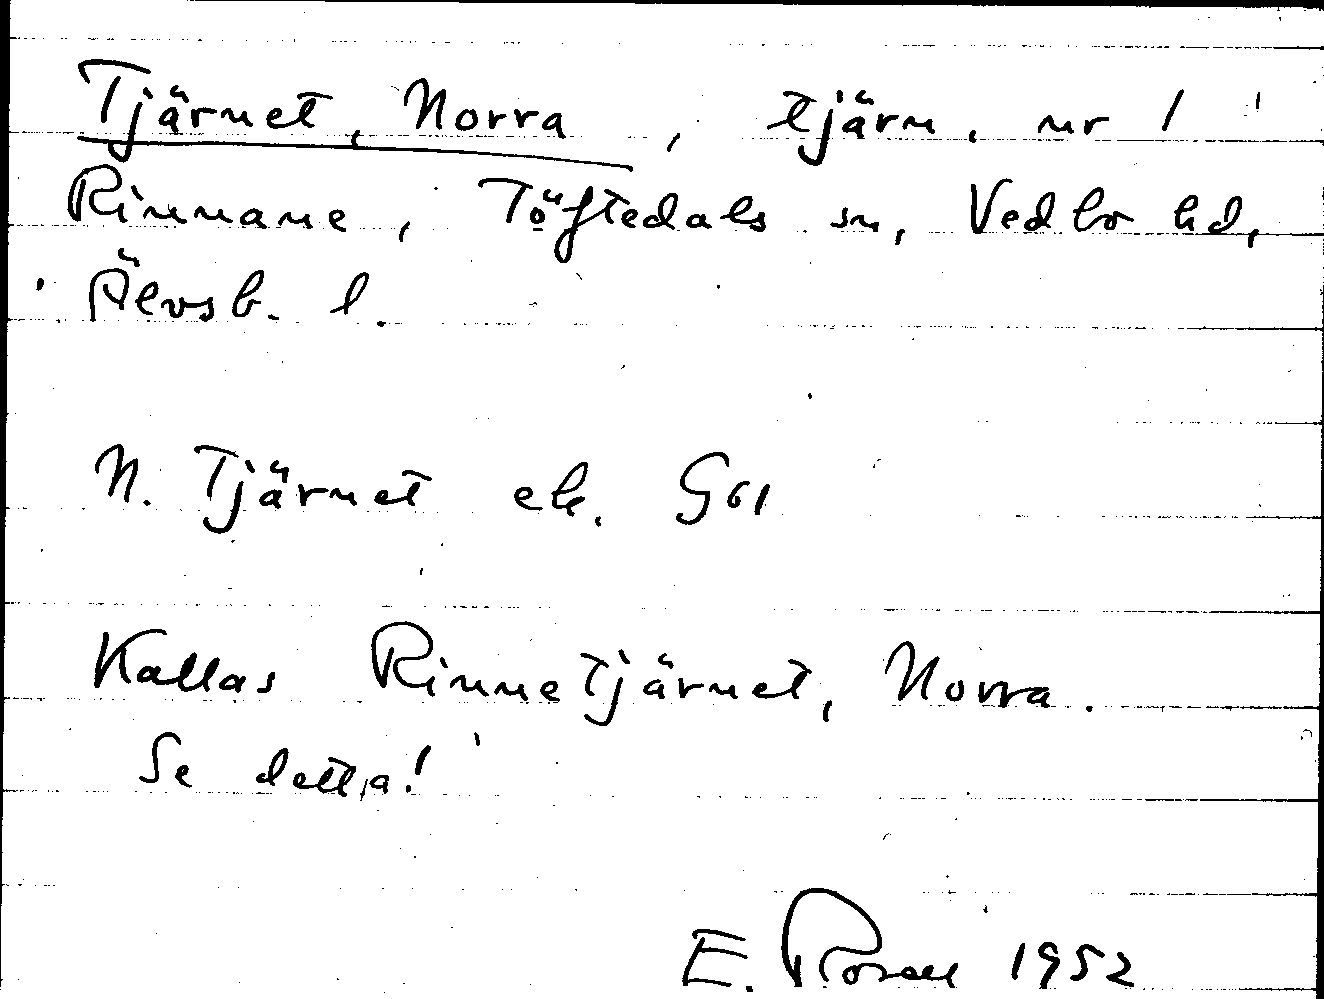 Tjärnet, Norra, tjärn, nr 1
Rinnane, Töftedals sn, Vedbo hd,
Älvsb. l.
N. Tjärnet ek. G61
Kallas Rinnetjärnet, Norra.
Se detta!
E. Rosell 1952